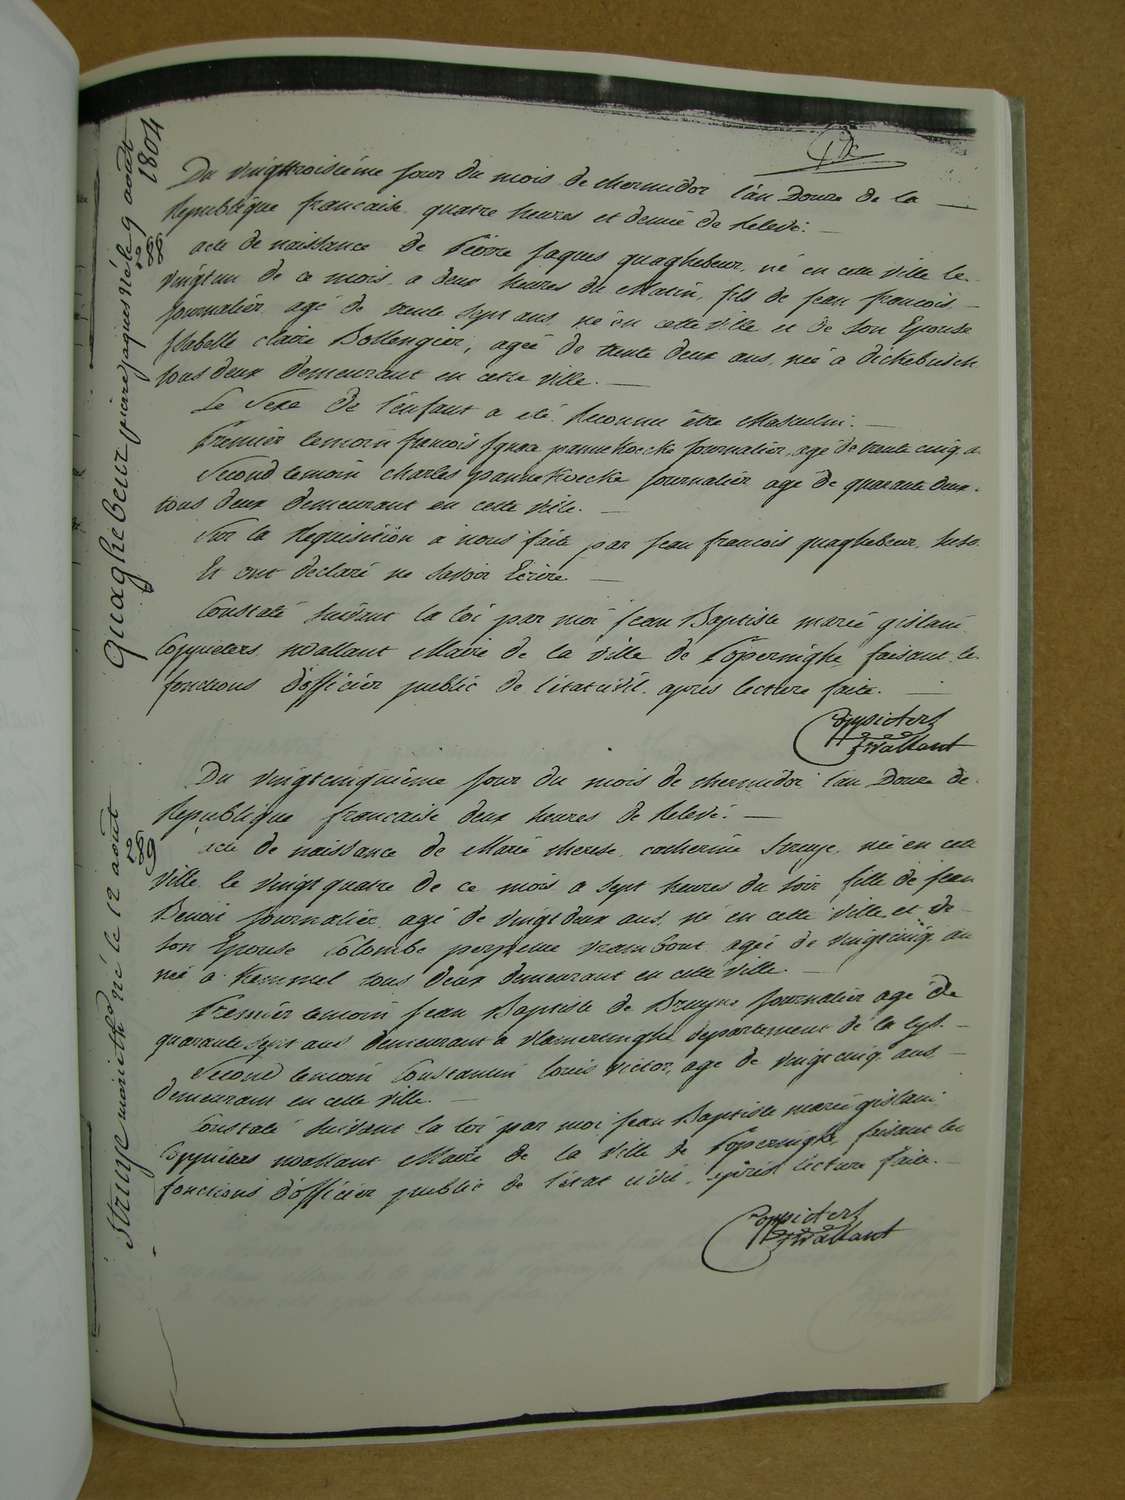 Du vingttroisième jour du mois de thermidor l'an Douze de la
Republique française quatre heures et demie de Relevé.
acte de naissance de Pierre Jaques quaghebeur, né en cette ville le
vingtun de ce mois, a deux heures du Matin, fils de jean francois
journalier, agé de trente sept ans, né en cette ville et de son Epouse
Isabelle claire Bollengier, agée de trente deux ans, née a dickebusch
tous deux demeurant en cette ville.
Le Sexe de l'enfant a été Reconnu être Masculin.
Premier temoin francois Ignace pannekoecke journalier, agé de trente cinq a
Second temoin charles pannekoecke journalier agé de quarante deux
tous deux demeurant en cette ville.
Sur la Requisition a nous faite par jean francois quaghebeur,
Et ont declaré ne savoir Ecrire
Constaté suivant la loi par moi jean Baptiste marie gislain
Coppieters wallant Maire de la ville de Poperinghe faisant les
fonctions d'officier public de l'etat civil. après lecture faite.
Coppieters
twallant
Du vingtcinquième jour du mois de thermidor l'an Douze de
Republique française deux heures de Relevé.
acte de naissance de Marie therese catherine Struye, née en cette
ville le vingt quatre de ce mois a sept heures du soir, fille de jean
Benoit journalier, agé de vingt deux ans, né en cette ville et de
son Epouse Colombe perpetue vrambout agée de vingtcinq an
née a Kemmel tous deux demeurant en cette ville.
Premier temoin jean Baptiste de Bruyne journalier agé de
quarante sept ans demeurant a vlamertinghe departement de la lys.
Second temoin Constantin louis victor, agé de vingt cinq ans
demeurant en cette ville.
Constaté suivant la loi par moi jean Baptiste marie gislain
Coppieters wallant Maire de la ville de Poperinghe faisant les
fonctions d'officier public de l'etat civil. après lecture faite.
Coppieters
twallant
quaghebeur pierre jaques né le 9 août
1804
288
Struye marie th né le 12 août
289